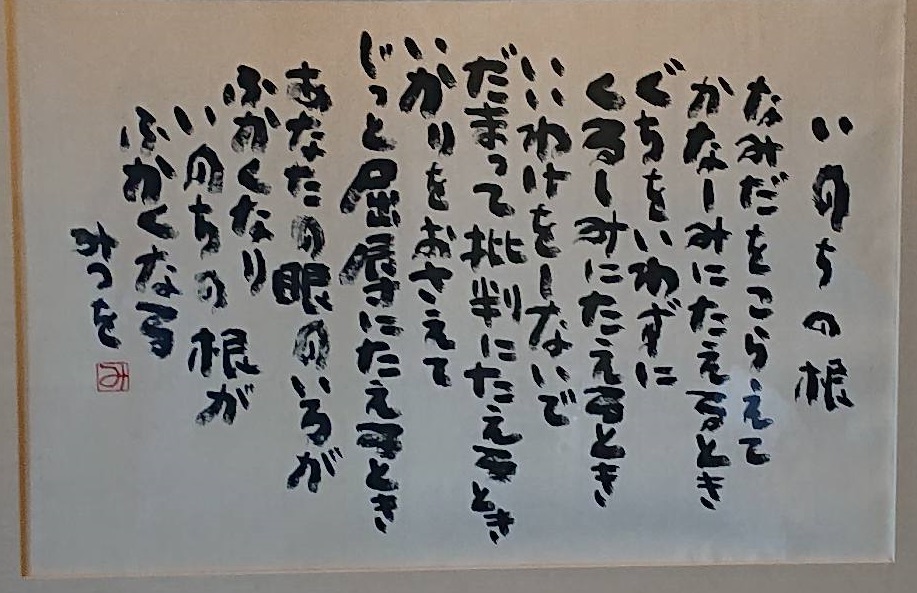 いのちの根
なみだをこらえて
かなしみにたえるとき
ぐちをいわずに
くるしみにたえるとき
いいわけをしないで
だまって批判にたえるとき
いかりをおさえて
じっと屈辱にたえるとき
あなたの眼のいろが
ふかくなり
いのちの根が
ふかくなる
みつを
み